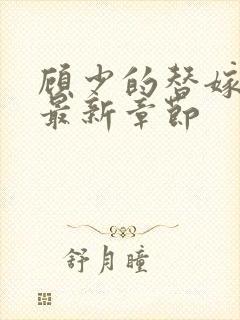 顾少的替嫁
最新章节
舒月瞳